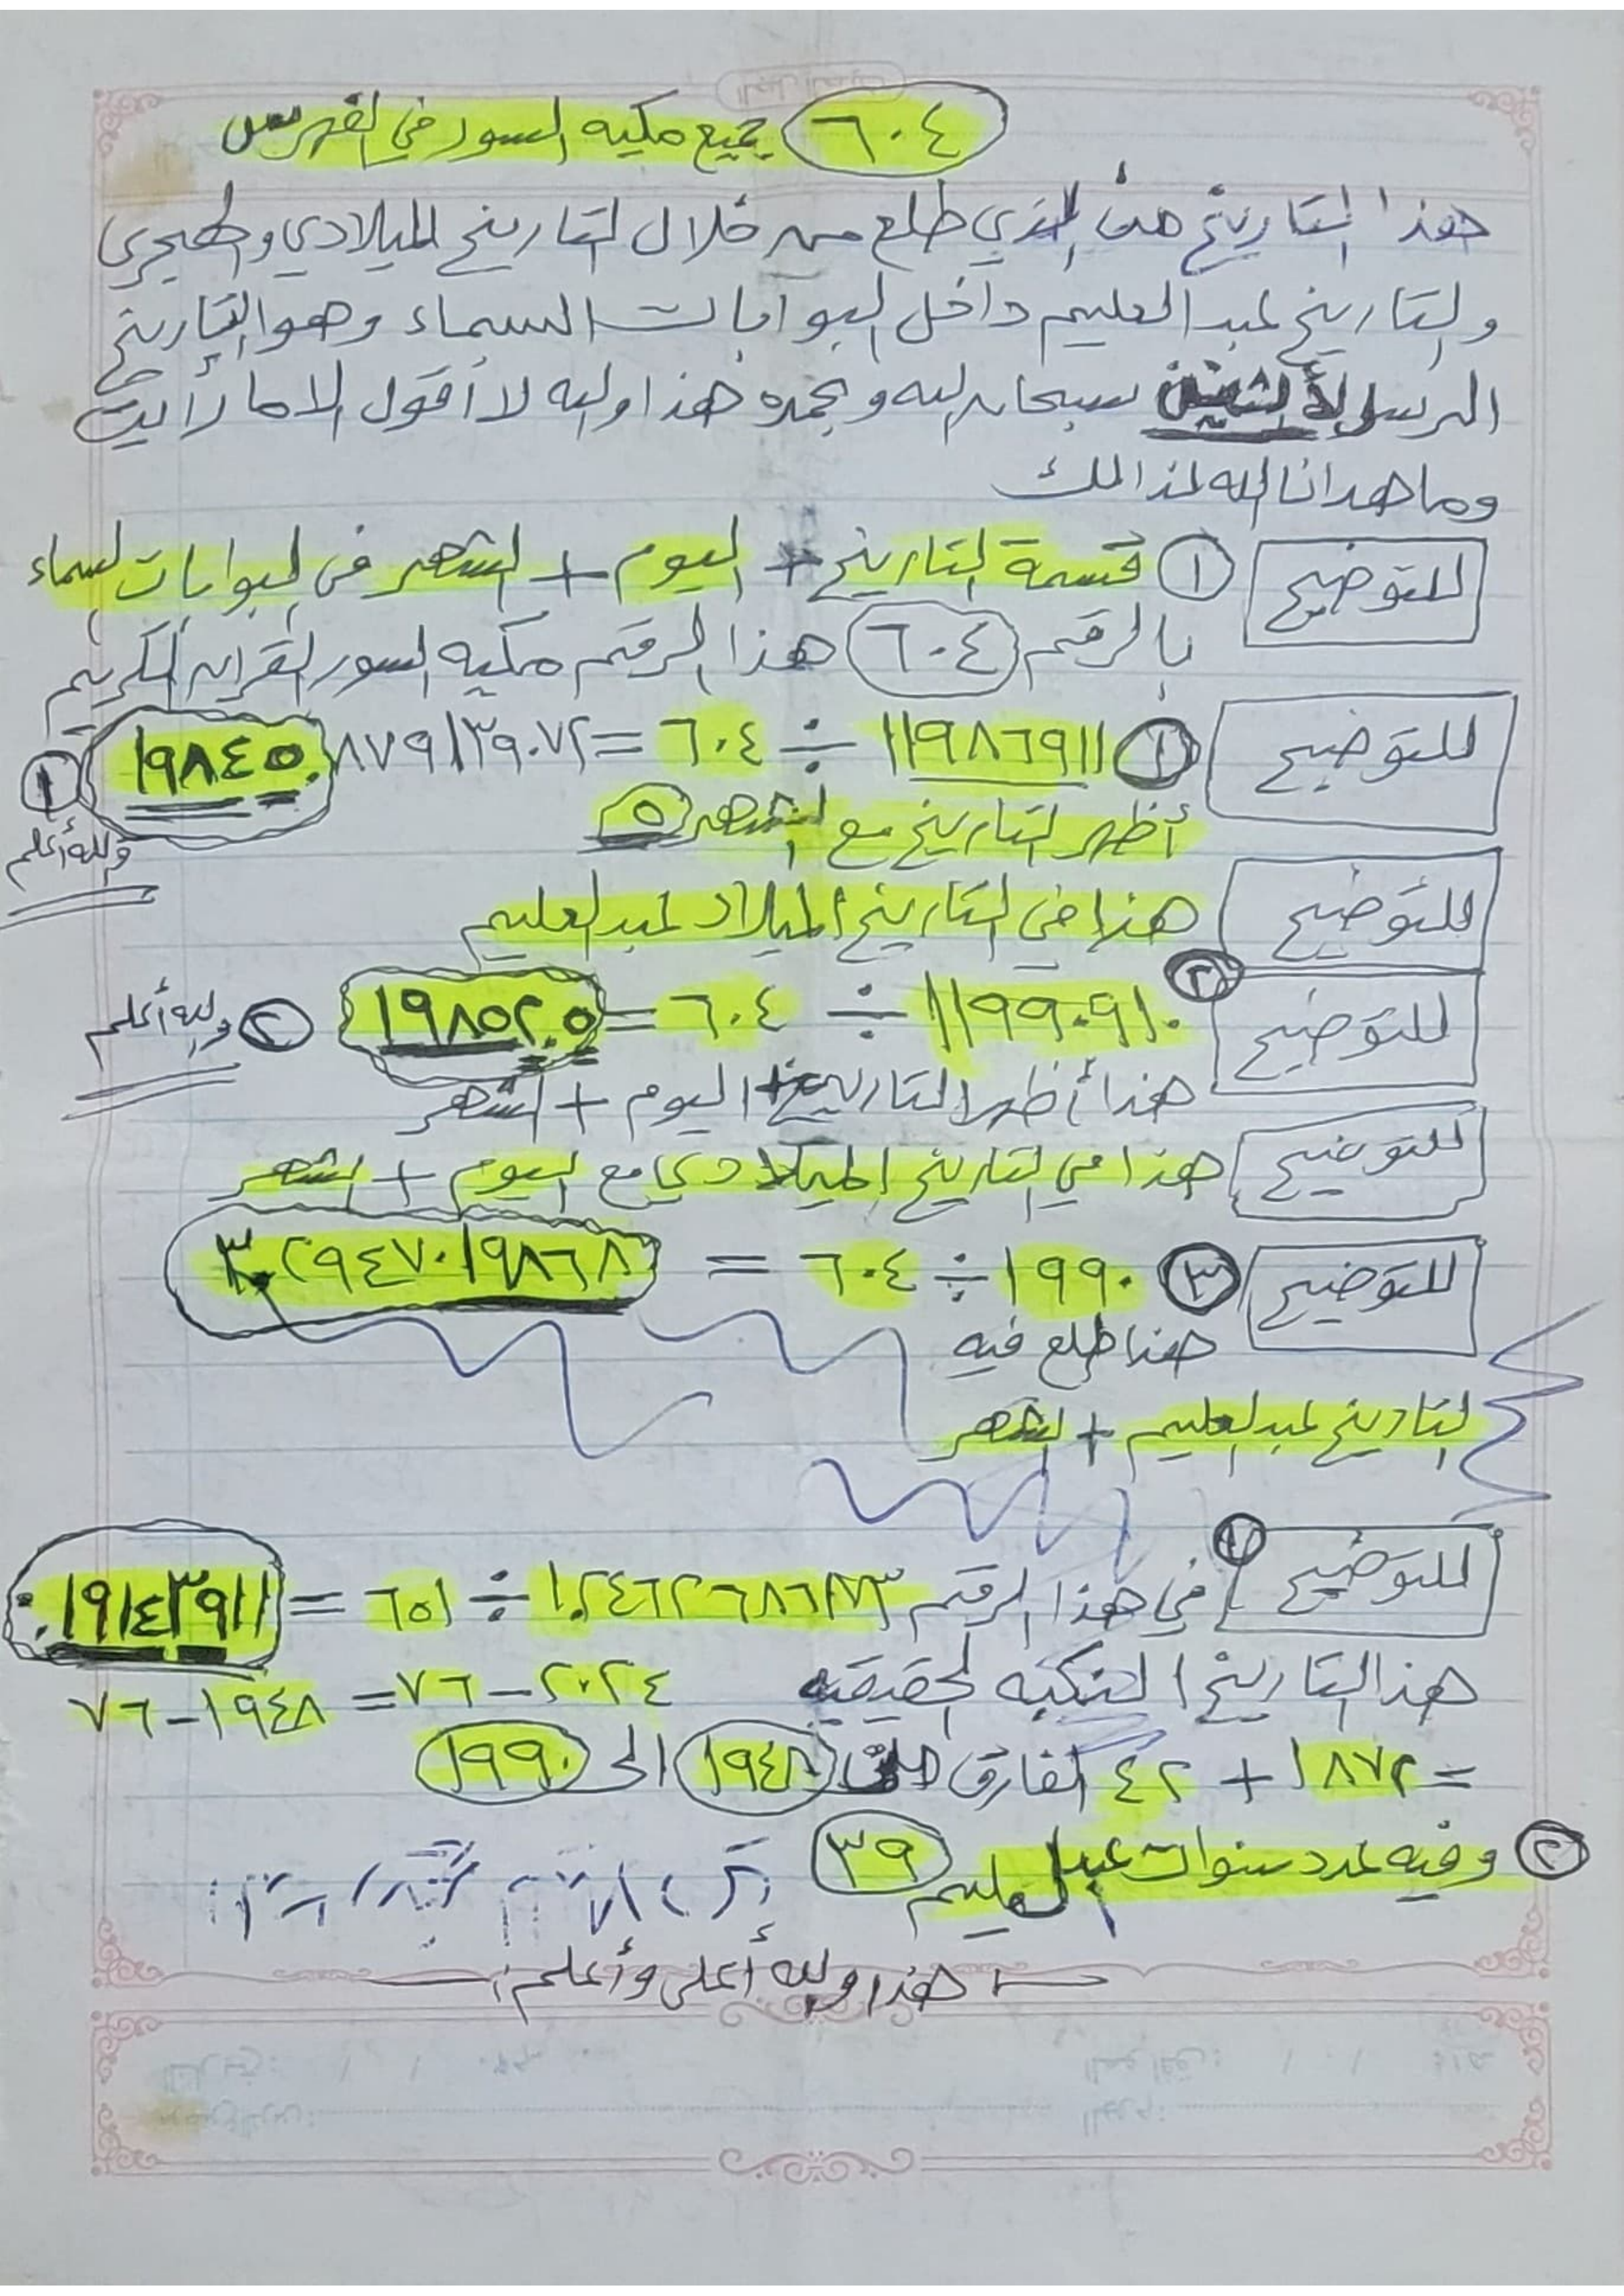 ٦٠٤ جميع مكيه السور في الفهرس
هذا التاريخ هو الذي طلع من خلال التاريخ الميلادي والهجري
والتاريخ عبد العليم داخل البوابات السماء وهو التاريخ
الرسالة سبحان الله وبحمده هذا والله لا أقول الا ما رأيت
وما هدانا الله لذالك
للتوضيح ١ قسمة التاريخ + اليوم + الشهر في البوابات السماء
بالرقم ٦٠٤ هذا الرقم مكيه السور القران الكريم
للتوضيح ١ ١١٩٨٦٩١١ ÷ ٦٠٤ = ١٩٨٤٥.٨٧٩١٣٩٠٧٢ ١
أظهر التاريخ مع الشهر ٥ والله أعلم
للتوضيح هذا في التاريخ الميلاد عبد العليم
للتوضيح ٢ ١١٩٩٠٩١٠ ÷ ٦٠٤ = ١٩٨٥٢.٥ ٢ والله أعلم
هذا أظهر التاريخ + اليوم + الشهر
للتوضيح هذا في التاريخ الميلادي مع اليوم + الشهر
للتوضيح ٣ ١٩٩٠ ÷ ٦٠٤ = ٣.٢٩٤٧٠١٩٨٦٨
هذا طلع فيه
التاريخ عبد العليم + الشهر
للتوضيح ١ في هذا الرقم ÷ ٦٥١ =
هذا التاريخ النكبه الحقيقيه ٢٠٢٤ - ٧٦ = ١٩٤٨ - ٧٦
= ١٨٧٢ + ٤٢ الفارق ١٩٤٨ الى ١٩٩٠
٢ وفيه عدد سنوات عبد العليم ٣٩
هذا والله أعلى وأعلم